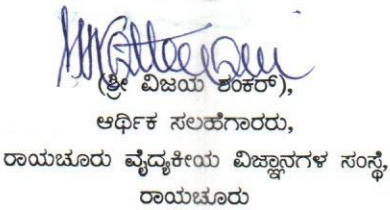 (ಶ್ರೀ ವಿಜಯ ಶಂಕರ್),
ಆರ್ಥಿಕ ಸಲಹೆಗಾರರು,
ರಾಯಚೂರು ವೈದ್ಯಕೀಯ ವಿಜ್ಞಾನಗಳ ಸಂಸ್ಥೆ,
ರಾಯಚೂರು